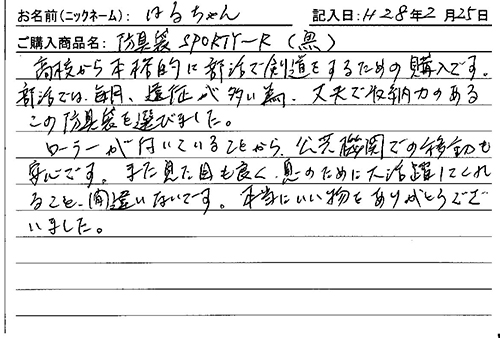 お名前(ニックネーム): はるちゃん 記入日: H28年2月25日
ご購入商品名: 防具袋 SPORTY-R (黒)
高校から本格的に部活で剣道をするための購入です。
部活では、毎月、遠征が多い為、丈夫で収納力のある
この防具袋を選びました。
ローラーが付いていることから、公共機関での移動も
安心です。また見た目も良く、息のために大活躍してくれ
ること、間違いないです。本当にいい物をありがとうござ
いました。